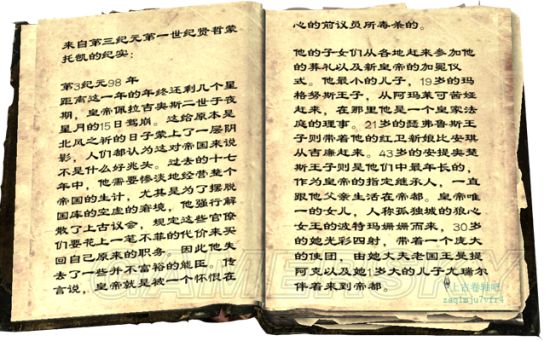 来自第三纪元第一世纪贤哲蒙
托凯的纪实：
第3纪元98 年
距离这一年的年终还剩几个星
期，皇帝佩拉吉奥斯二世于夜
星月的15日驾崩。这给原本是
北风之祈的日子蒙上了一层阴
影，人们都认为这对帝国来说
不是什么好兆头。过去的十七
年中，他需要惨淡地经营整个
帝国的生计，尤其是为了摆脱
国库的空虚的窘境，他强行解
散了上古议会，规定这些官僚
们要花上一笔不菲的代价来买
回自己原来的职务。因此他失
去了一些并不富裕的能臣，传
言说，皇帝就是被一个怀恨在
心的前议员所毒杀的。
他的子女们从各地赶来参加他
的葬礼以及新皇帝的加冕仪
式。他最小的儿子，19岁的玛
格努斯王子，从阿玛莱可茜娅
赶来，在那里他是一个皇家法
庭的理事。21岁的瑟弗鲁斯王
子则带着他的红卫新娘比安琪
从吉廉赶来。43岁的安提奥楚
斯王子则是他们中最年长的，
作为皇帝的指定继承人，一直
跟他父亲生活在帝都。皇帝唯
一的女儿，人称孤独城的狼心
女王的波特玛姗姗而来，30岁
的她光彩四射，带着一个庞大
的使团，由她丈夫老国王曼提
阿克以及她1岁大的儿子尤瑞尔
伴着来到帝都。
上古卷轴吧
zaq1mju7vfr4
GAMERSKY